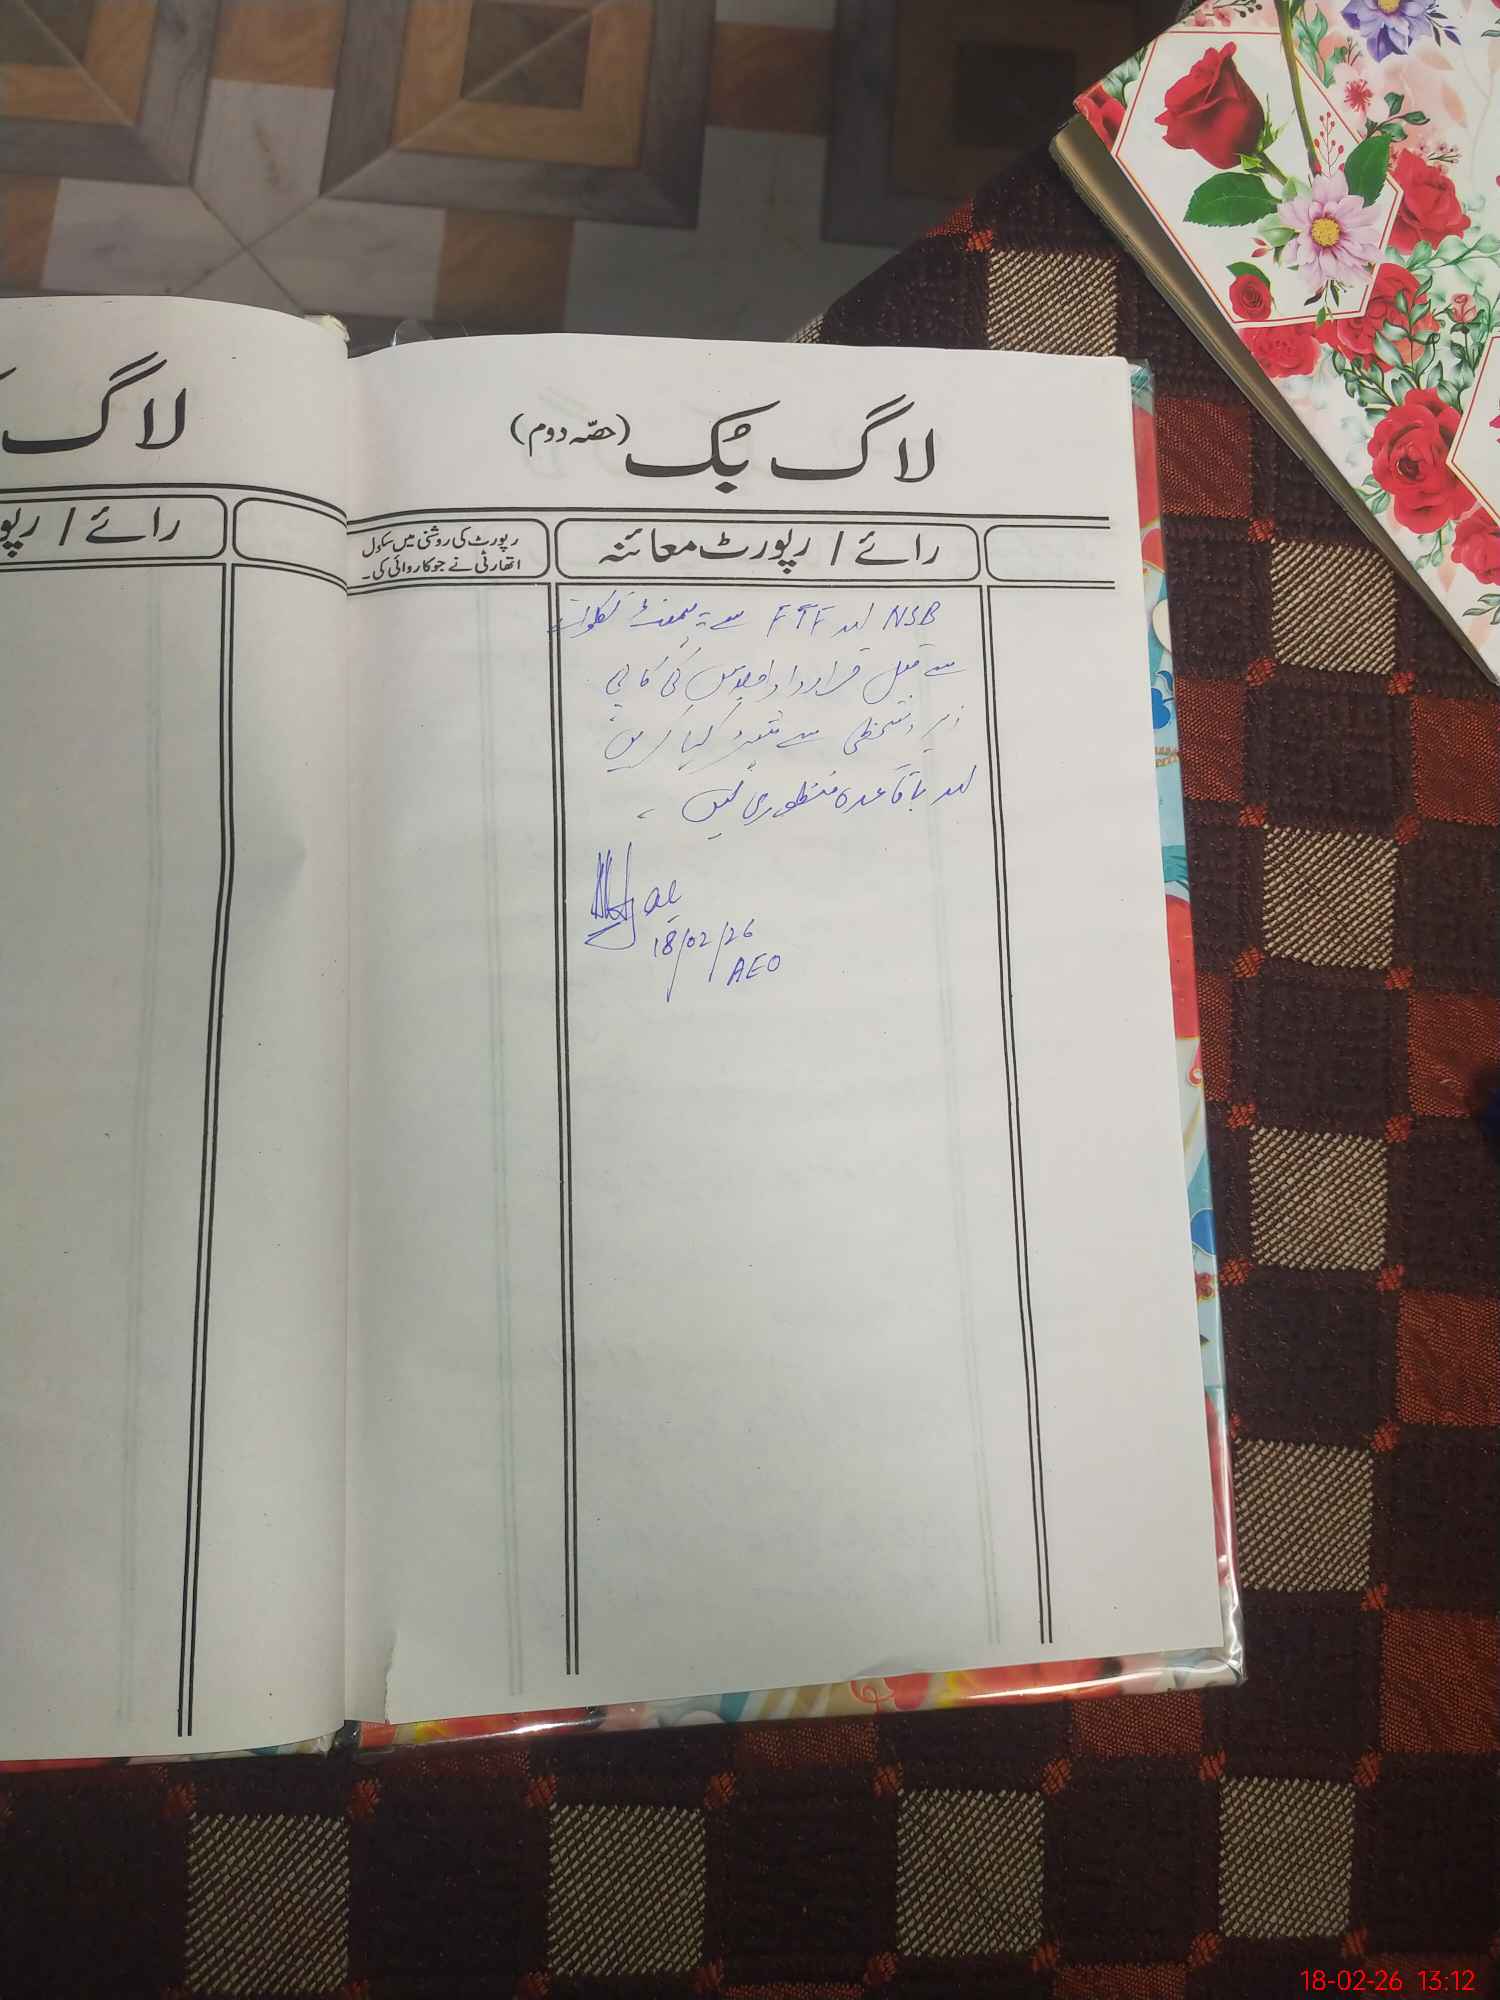 لاگ
رائے / رپو
لاگ بُک (حصّہ دوم)
رائے / رپورٹ معائنہ
رپورٹ کی روشنی میں سکول
اتھارٹی نے جو کاروائی کی۔
NSB اور FTF سے پیمنٹ نکلوانے
سے قبل قرارداد اجلاس کی کاپی
زیر دستخطی سے کیا کریں
اور باقاعدہ منظوری لیں ۔
18/02/26
AEO
18-02-26 13:12